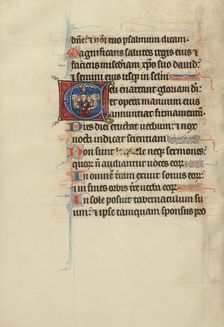 dñe: et nõi tuo psalmum dicam.
Magnificans salutes regis eius et
faciens misẽdiam xp̃o suo dauid:
et semini eius usq; in sclm
Celi enarrant gloriam di:
et opera manuum eius
annuntiat firmamentum
Dies diei eructat uerbum: et nox
nocti indicat scientiam
Non sunt loquele neq; sermones:
quor̃ ñ audiantur uoces eor̃
In omnem terram exiuit sonus eor̃:
et in fines orbis tr̃e uerba eor̃
In sole posuit tabernaculum su
um: et ipse tamquam sponsus pro